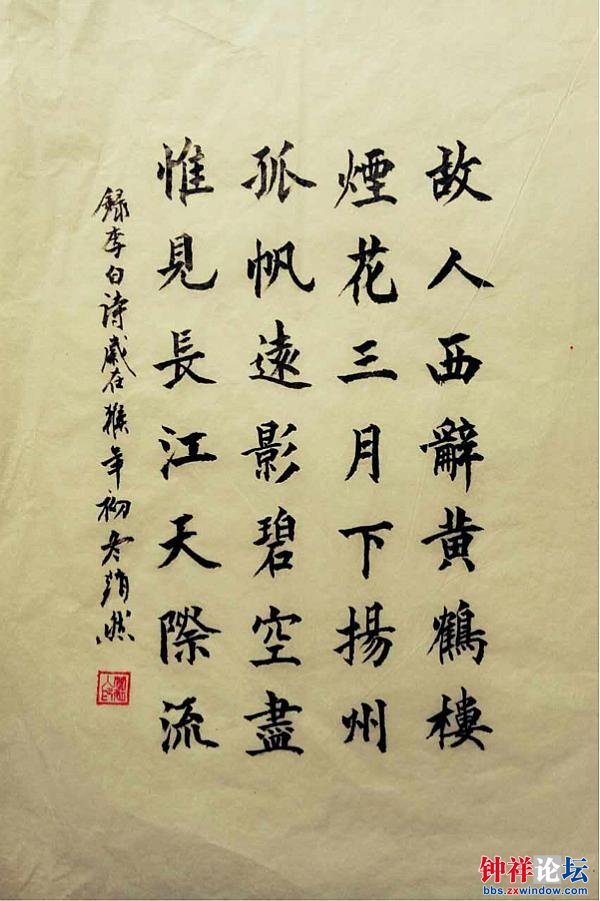 故人西辭黄鶴樓
煙花三月下揚州
孤帆遠影碧空盡
惟見長江天際流
録李白詩歲在猴年初冬
钟祥论坛
bbs.zxwindow.com